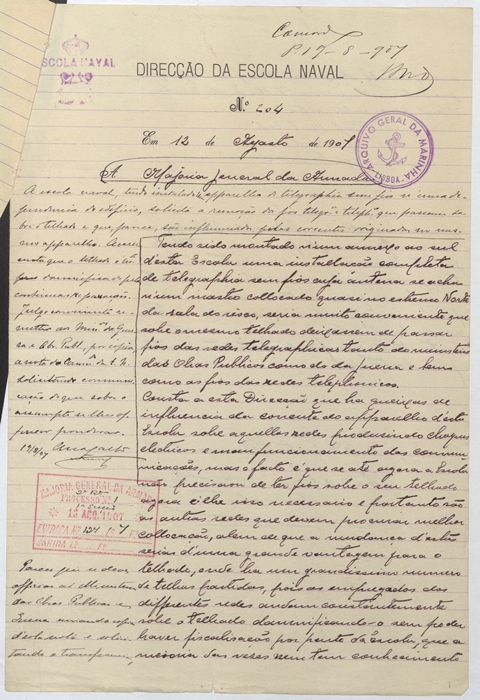 Concordo
P. 17-8-907
ESCOLA NAVAL
DIRECÇÃO DA ESCOLA NAVAL
Nº 204
Em 12 de Agosto de 1907
ARQUIVO GERAL DA MARINHA
LISBOA
Á Majoria General da Armada
A escola naval, tendo installado apparelho de telegraphia sem fios n'uma de-
pendencia do edificio, solicita a remoção de fios telegr. e teleph. que passam so-
bre o telhado e que parece, são influenciados pelas correntes originadas no mes-
mo apparelho. Accres-
centa que o telhado é
damnificado pela
continuação de passagem.
Tendo sido montado n'um annexo ao sul
d'esta Escola uma installação completa
de telegraphia sem fios cuja antena se acha
n'um mastro collocado quasi no extremo Norte
da sala do risco, seria muito conveniente que
sobre o mesmo telhado deixassem de passar
fios das redes telegraphicas tanto do ministerio
das Obras Publicas como do da Guerra e bem
como as fios das redes telephonicas.
Consta a esta Direcção que ha queixas de
influencia da corrente do apparelho d'esta
Escola sobre aquellas redes produzindo choques
electricos e mau funccionamento das commu-
nicações, mas o facto é que se até agora a Escola
não precisou de ter fios sobre o seu telhado
agora é lhe isso necessario e portanto são
as outras redes que devem procurar melhor
collocação, alem de que a mudança d'estas
seria d'uma grande vantagem para o
telhado, onde ha um grandissimo numero
de telhas partidas, pois os empregados das
differentes redes andam constantemente
sobre o telhado damnificando-o sem poder
haver fiscalisação por parte da Escola, que a
maioria das vezes nem tem conhecimento
solicitando communi-
cação do que sobre o
assumpto se lhes of-
ferecer ponderar.
MAJORIA GENERAL DA ARMADA
PROCESSO Nº
13 AGO. 1907
ENTRADA Nº
SAHIDA Nº
Parece que se deve
officiar ao Ministerio
das Obras Publicas e
Guerra enviando copia
d'esta nota e